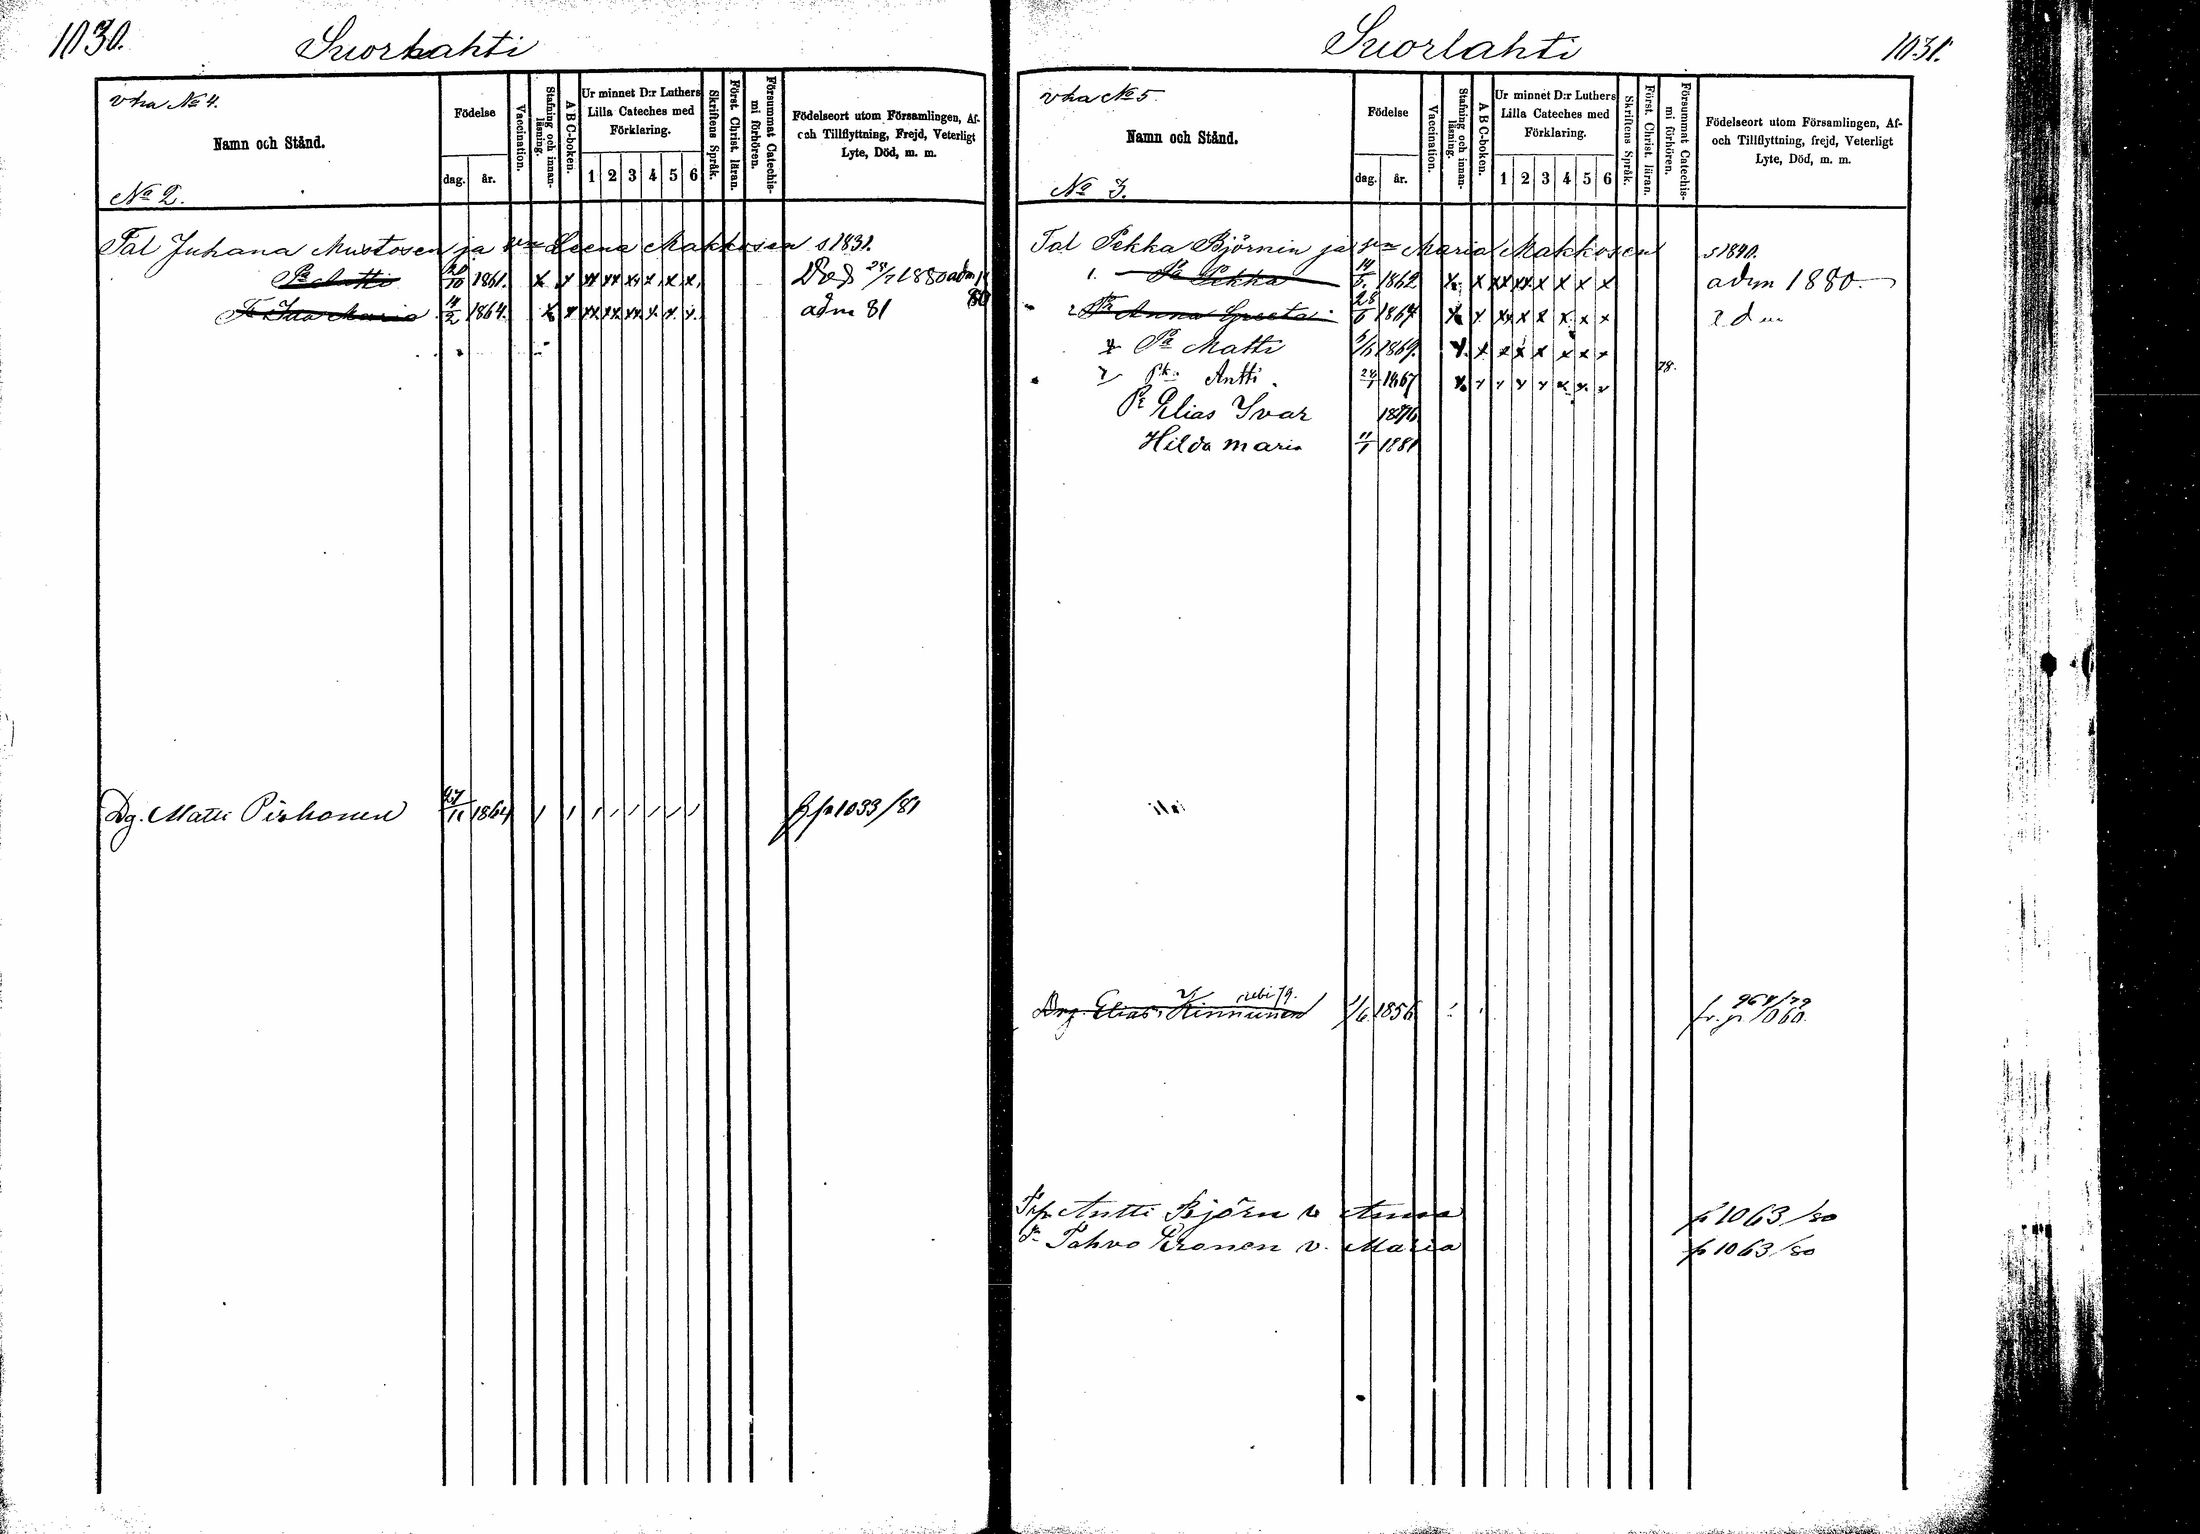 1030.
Suorlahti
vha No 4.
Namn och Stånd.
No 2.
Födelse
dag.
år.
Vaccination.
Stafning och innan-
läsning.
ABC-boken.
Ur minnet D:r Luthers
Lilla Cateches med
Förklaring.
1 2 3 4 5 6
Skriftens Språk.
Först. Christ. läran.
Försummat Catechis-
mi förhören.
Födelseort utom Församlingen, Af-
och Tillflyttning, Frejd, Veterligt
Lyte, Död, m. m.
Tal Juhana Mustosen ja vmo Leena Makkosen s 1831.
Pa Antti 20/10 1861. x x xx xx xx x x x Död 29/7 1880 adm 80
Tr Ida Maria 4/2 1864. x x xx xx xx x x x adm 81
Dg. Matti Pirhonen 27/11 1864 fr p 1033/81
Suorlahti
1031.
vha No 5.
Namn och Stånd.
No 3.
Födelse
dag.
år.
Vaccination.
Stafning och innan-
läsning.
ABC-boken.
Ur minnet D:r Luthers
Lilla Cateches med
Förklaring.
1 2 3 4 5 6
Skriftens Språk.
Först. Christ. läran.
Försummat Catechis-
mi förhören.
Födelseort utom Församlingen, Af-
och Tillflyttning, frejd, Veterligt
Lyte, Död, m. m.
Tal Pekka Björnin ja vmo Maria Makkosen s 1840.
1. Pa Pekka 1862. x x xx xx x x x x adm 1880
2 Tr Anna Greeta 1864 x x xx x x x x x
Pa Matti 1869. x x x x x x x x
Pk: Antti 1867 x x x x x x x x 78.
Pr Elias Ivar 1876
Hilda Maria 11/1 1881
Drg. Elias Kinnunen 1/6 1856 fr. p. 1060. 964/79
Antti Björn v Anna p 1063/80
Pahvo Kronen v. Maria p 1063/80